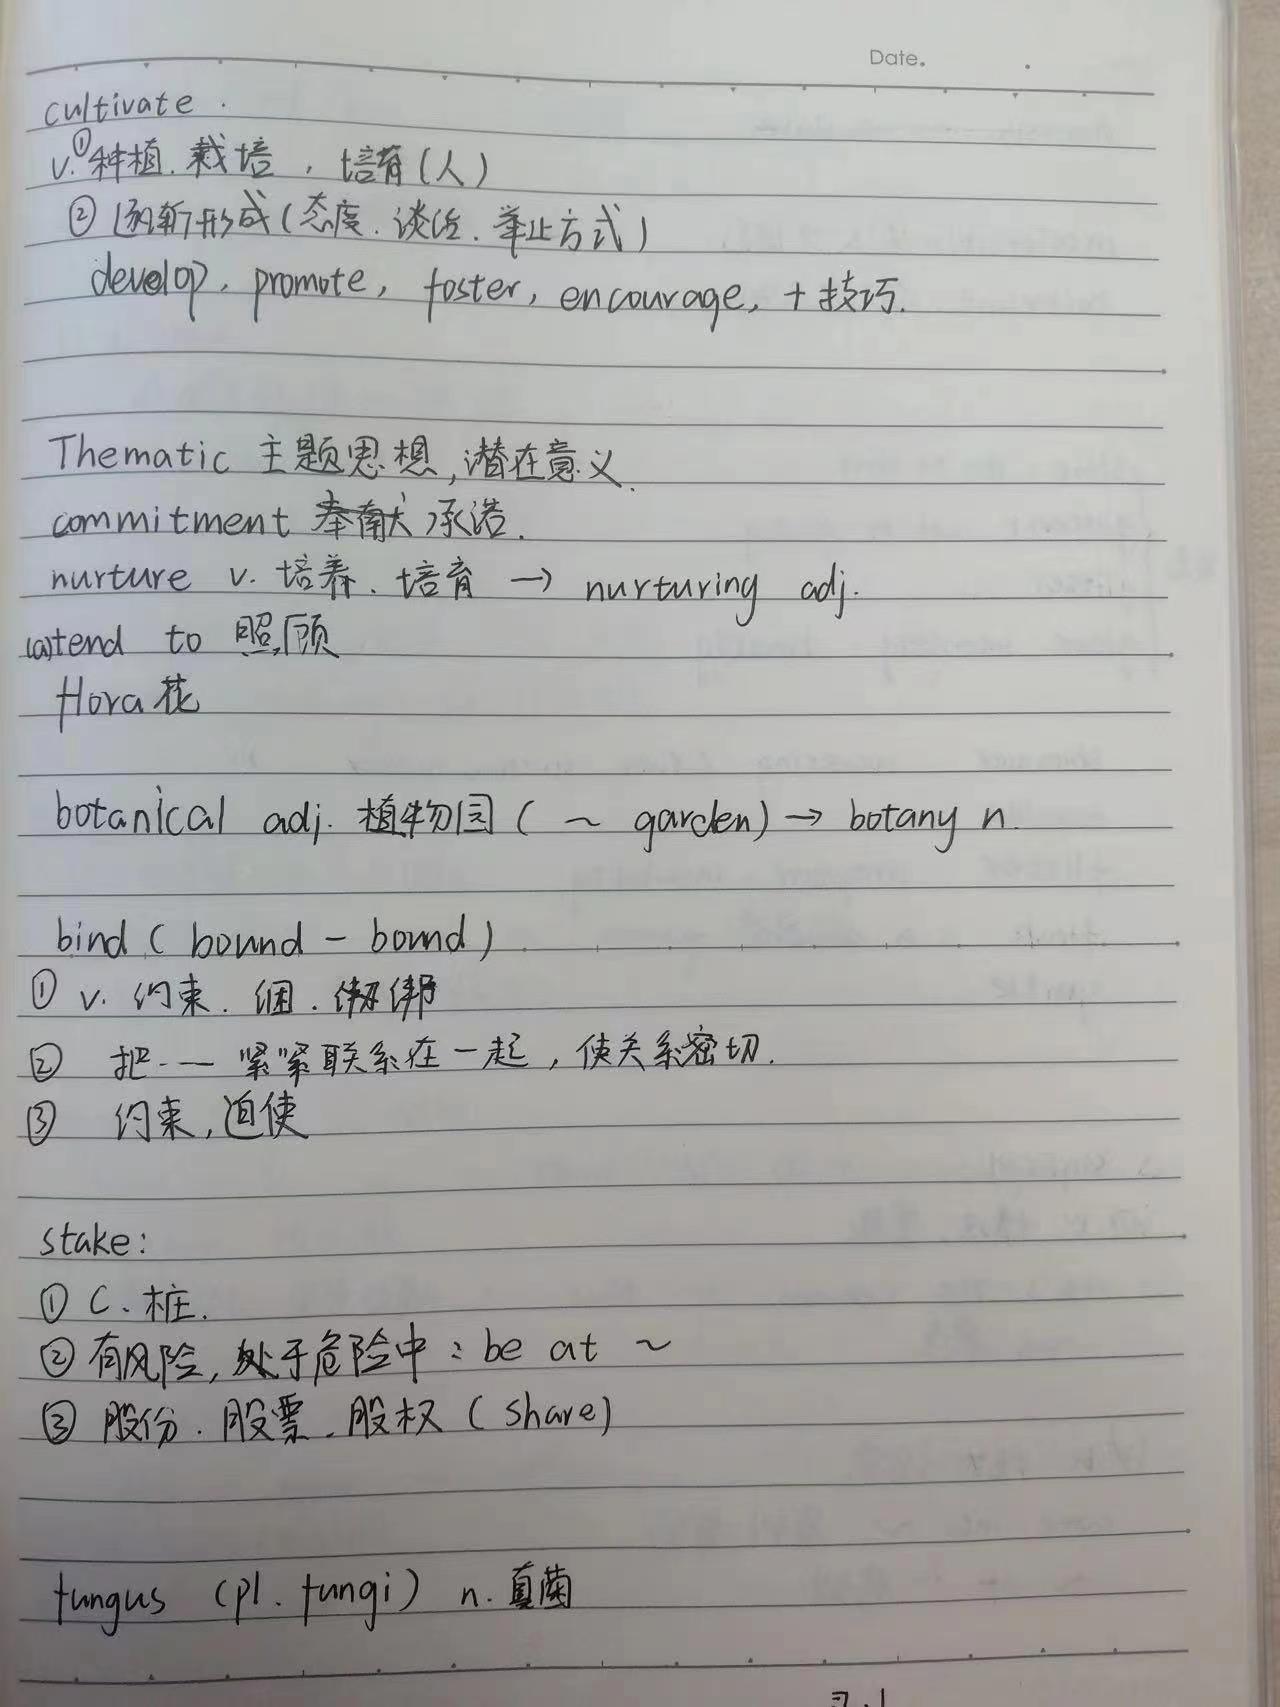 Date.
cultivate .
v.① 种植. 栽培 , 培育(人)
② 逐渐形成(态度. 谈话. 举止方式)
develop, promote, foster, encourage, + 技巧.
Thematic 主题思想, 潜在意义.
commitment 奉献 承诺.
nurture v. 培养. 培育 → nurturing adj.
(a)tend to 照顾
flora 花
botanical adj. 植物园 ( ~ garden) → botany n.
bind ( bound - bound )
① v. 约束. 捆. 绑
② 把 ·— 紧紧联系在一起, 使关系密切.
③ 约束, 迫使
stake:
① C. 桩.
② 有风险, 处于危险中 : be at ~
③ 股份. 股票. 股权 ( share)
fungus (pl. fungi) n. 真菌